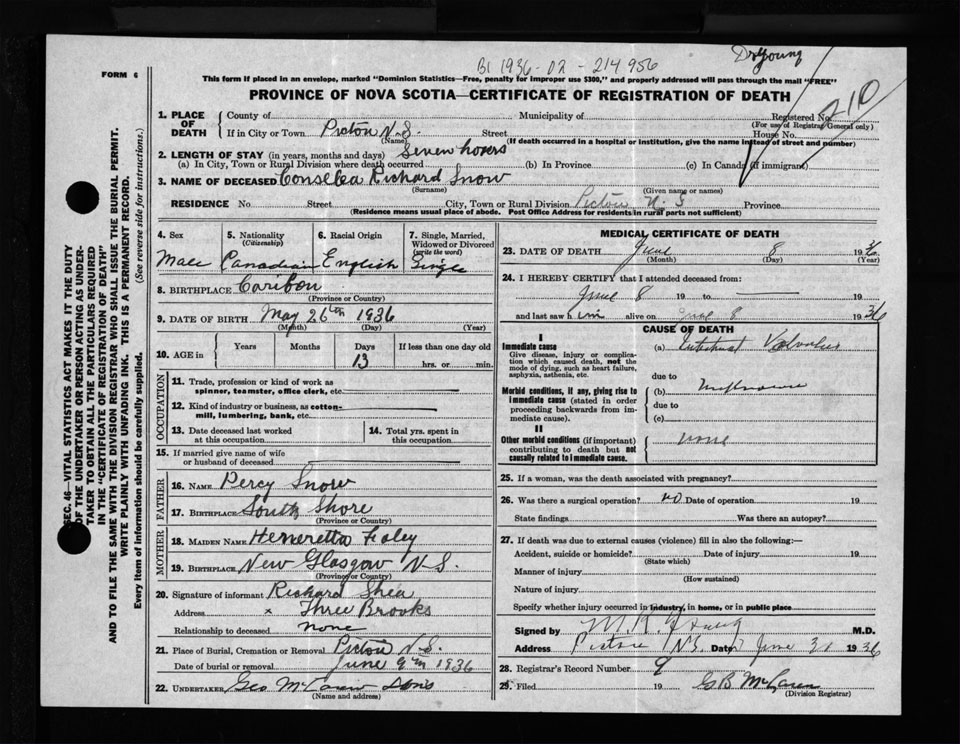 Dr Young
B1 1936-02-214956
210
FORM 6
This form if placed in an envelope, marked "Dominion Statistics—Free, penalty for improper use $300," and properly addressed will pass through the mail "FREE"
PROVINCE OF NOVA SCOTIA—CERTIFICATE OF REGISTRATION OF DEATH
SEC. 46—VITAL STATISTICS ACT MAKES IT THE DUTY
OF THE UNDERTAKER OR PERSON ACTING AS UNDER-
TAKER TO OBTAIN ALL THE PARTICULARS REQUIRED
IN THE "CERTIFICATE OF REGISTRATION OF DEATH"
AND TO FILE THE SAME WITH THE DIVISION REGISTRAR WHO SHALL ISSUE THE BURIAL PERMIT.
WRITE PLAINLY WITH UNFADING INK. THIS IS A PERMANENT RECORD.
Every item of information should be carefully supplied. (See reverse side for instructions.)
1. PLACE OF DEATH
County of Municipality of Registered No.
(For use of Registrar General only)
If in City or Town Picton N.S. Street House No.
(Name) (If death occurred in a hospital or institution, give the name instead of street and number)
2. LENGTH OF STAY (in years, months and days) Seven hours
(a) In City, Town or Rural Division where death occurred (b) In Province (c) In Canada (if immigrant)
3. NAME OF DECEASED Richard Snow
(Surname) (Given name or names)
RESIDENCE No. Street City, Town or Rural Division Picton N.S Province
(Residence means usual place of abode. Post Office Address for residents in rural parts not sufficient)
4. Sex 5. Nationality (Citizenship) 6. Racial Origin 7. Single, Married, Widowed or Divorced (write the word)
Male Canadian English Single
8. BIRTHPLACE Caribou
(Province or Country)
9. DATE OF BIRTH May 26th 1936
(Month) (Day) (Year)
10. AGE in Years Months Days If less than one day old
13 hrs. or min.
OCCUPATION
11. Trade, profession or kind of work as
spinner, teamster, office clerk, etc.
12. Kind of industry or business, as cotton-
mill, lumbering, bank, etc.
13. Date deceased last worked
at this occupation
14. Total yrs. spent in
this occupation
15. If married give name of wife
or husband of deceased
FATHER
16. NAME Percy Snow
17. BIRTHPLACE South Shore
(Province or Country)
MOTHER
18. MAIDEN NAME Heneretta Foley
19. BIRTHPLACE New Glasgow N.S.
(Province or Country)
20. Signature of informant Richard Shea
Address x Three Brooks
Relationship to deceased None
21. Place of Burial, Cremation or Removal Picton N.S.
Date of burial or removal June 9th 1936
22. UNDERTAKER Geo McLaren Sons
(Name and address)
MEDICAL CERTIFICATE OF DEATH
23. DATE OF DEATH June 8 1936
(Month) (Day) (Year)
24. I HEREBY CERTIFY that I attended deceased from:
June 8 19 to 19
and last saw him alive on June 8 1936
CAUSE OF DEATH
I
Immediate cause
Give disease, injury or complica-
tion which caused death, not the
mode of dying, such as heart failure,
asphyxia, asthenia, etc.
(a) Intestinal Volvulus
due to
Morbid conditions, if any, giving rise to
immediate cause (stated in order
proceeding backwards from im-
mediate cause).
(b)
due to
(c)
II
Other morbid conditions (if important)
contributing to death but not
causally related to immediate cause.
none
25. If a woman, was the death associated with pregnancy?
26. Was there a surgical operation? no Date of operation 19
State findings Was there an autopsy?
27. If death was due to external causes (violence) fill in also the following:—
Accident, suicide or homicide? Date of injury 19
(State which)
Manner of injury
(How sustained)
Nature of injury
Specify whether injury occurred in industry, in home, or in public place
Signed by M.R. Young M.D.
Address Pictou N.S. Date June 1936
28. Registrar's Record Number 9
29. Filed 19 G B McLaren
(Division Registrar)